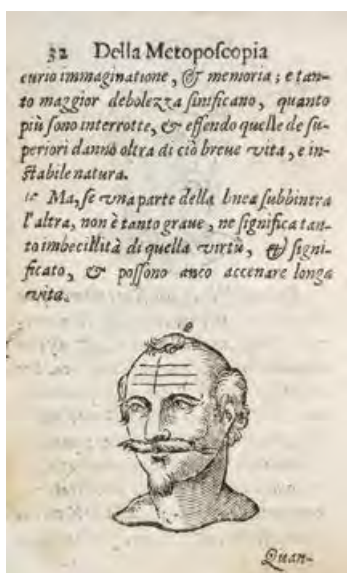 32 Della Metoposcopia
curio immaginatione, & memoria; e tan-
to maggior debolezza sinificano, quanto
più sono interrotte, & essendo quelle de su-
periori dannò oltra di ciò breue vita, e in-
stabile natura.
Ma, se vna parte della linea subbintra
l'altra, non è tanto graue, ne significa tan-
to imbecillità di quella virtù, & signi-
ficato, & possono anco accenare longa
vita.
Quan-